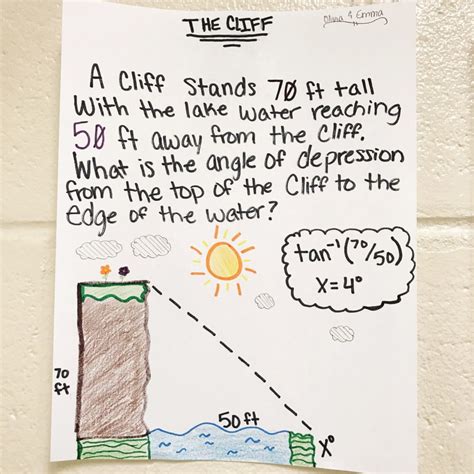 THE CLIFF
Olivia & Emma
A Cliff Stands 70 ft tall
With the lake water reaching
50 ft away from the Cliff.
What is the angle of depression
from the top of the Cliff to the
edge of the water?
tan⁻¹(70/50)
X=4°
70
ft
50ft
X°